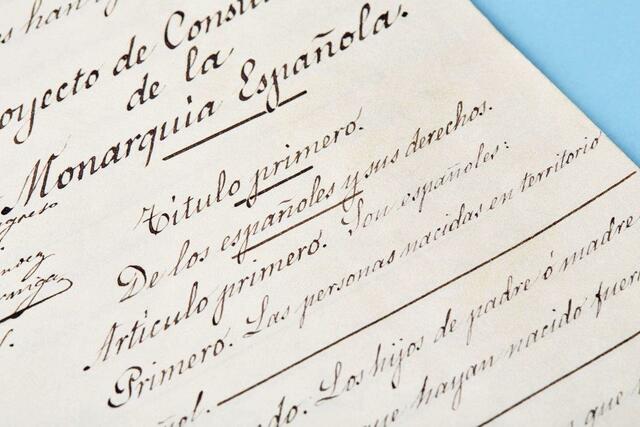 de Consti
de la
Monarquia Española.
Título primero.
De los españoles y sus derechos.
Artículo primero. Son españoles:
Primero. Las personas nacidas en territorio
Los hijos de padre ó madre
que hayan nacido fuera
que